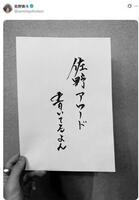 佐野勇斗
佐野アワード
書いてるよん